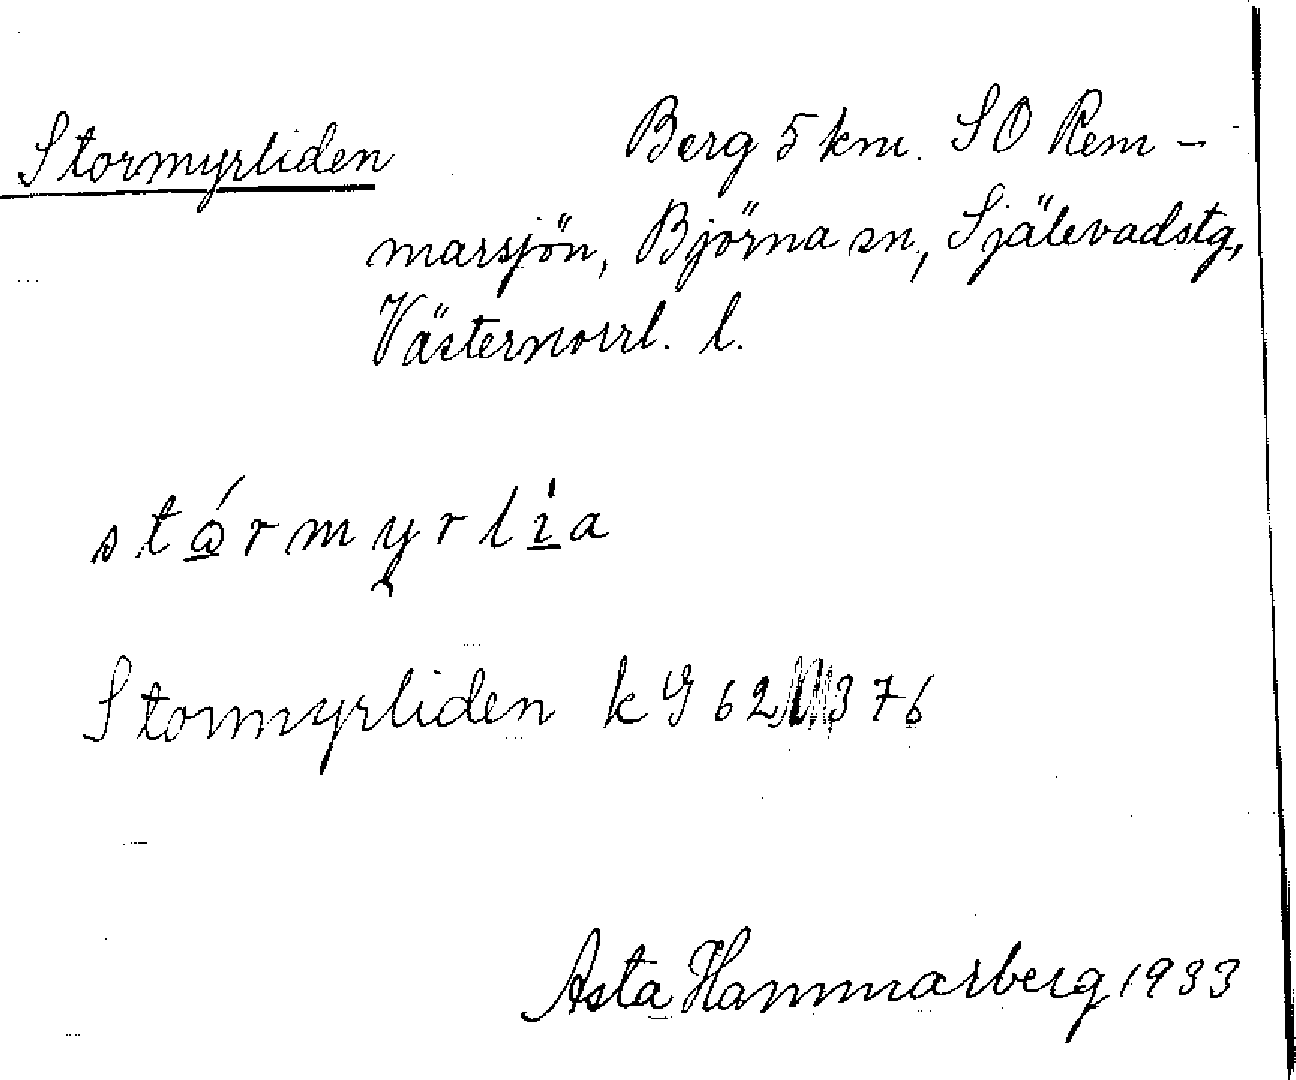 Stormyrliden Berg 5 km. SO Rem-
marsjön, Björna sn, Själevadstg,
Västernorrl. l.
stǫ́rmyrlìa
Stormyrliden k G 62 376
Asta Hammarberg 1933